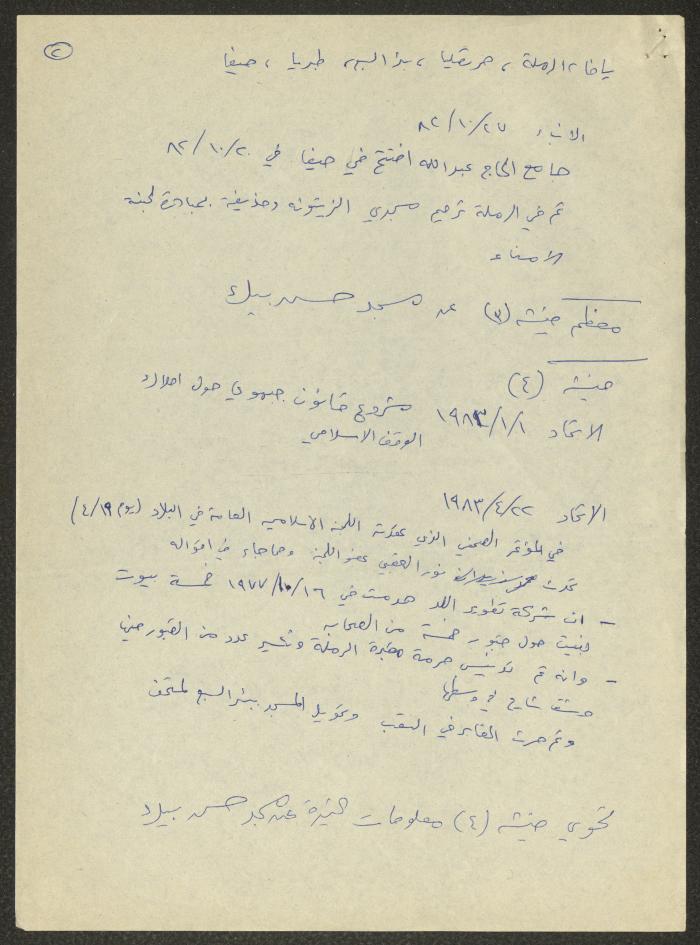 ٢
يافا، الرملة، صرفند، بئر السبع، طبريا، حيفا
الانباء ٨٢/١٠/٢٧
جامع الحاج عبدالله افتتح في حيفا في ٨٢/١٠/٢٠
تم في الرملة ترميم مسجدي الزيتونه وحذيفة بمبادرة لجنة
الامناء
معظم فيشه (٣) عن مسجد حسن بيك
فيشه (٤)
الاتحاد ١٩٨٣/١/١ مشروع قانون جبهوي حول املاك
الوقف الاسلامي
الاتحاد ١٩٨٣/٤/٢٢
في المؤتمر الصحفي الذي عقدته اللجنة الاسلاميه العامة في البلاد (يوم ٤/١٩)
تحدث نور العقبي عضو اللجنة ومما جاء في اقواله
- ان شركة تطوير اللد هدمت في ١٩٧٧/١٠/١٦ خمسة بيوت
بنيت حول قبور خمسة من الصحابه
- وانه تم تدنيس حرمة مقبرة الرملة وتكسير عدد من القبور فيها
وشق شارع في وسطها
وتم حرث المقابر في النقب وتحويل المسجد ببئر السبع لمتحف
تحوي فيشه (٤) معلومات كثيرة عن مسجد حسن بيك